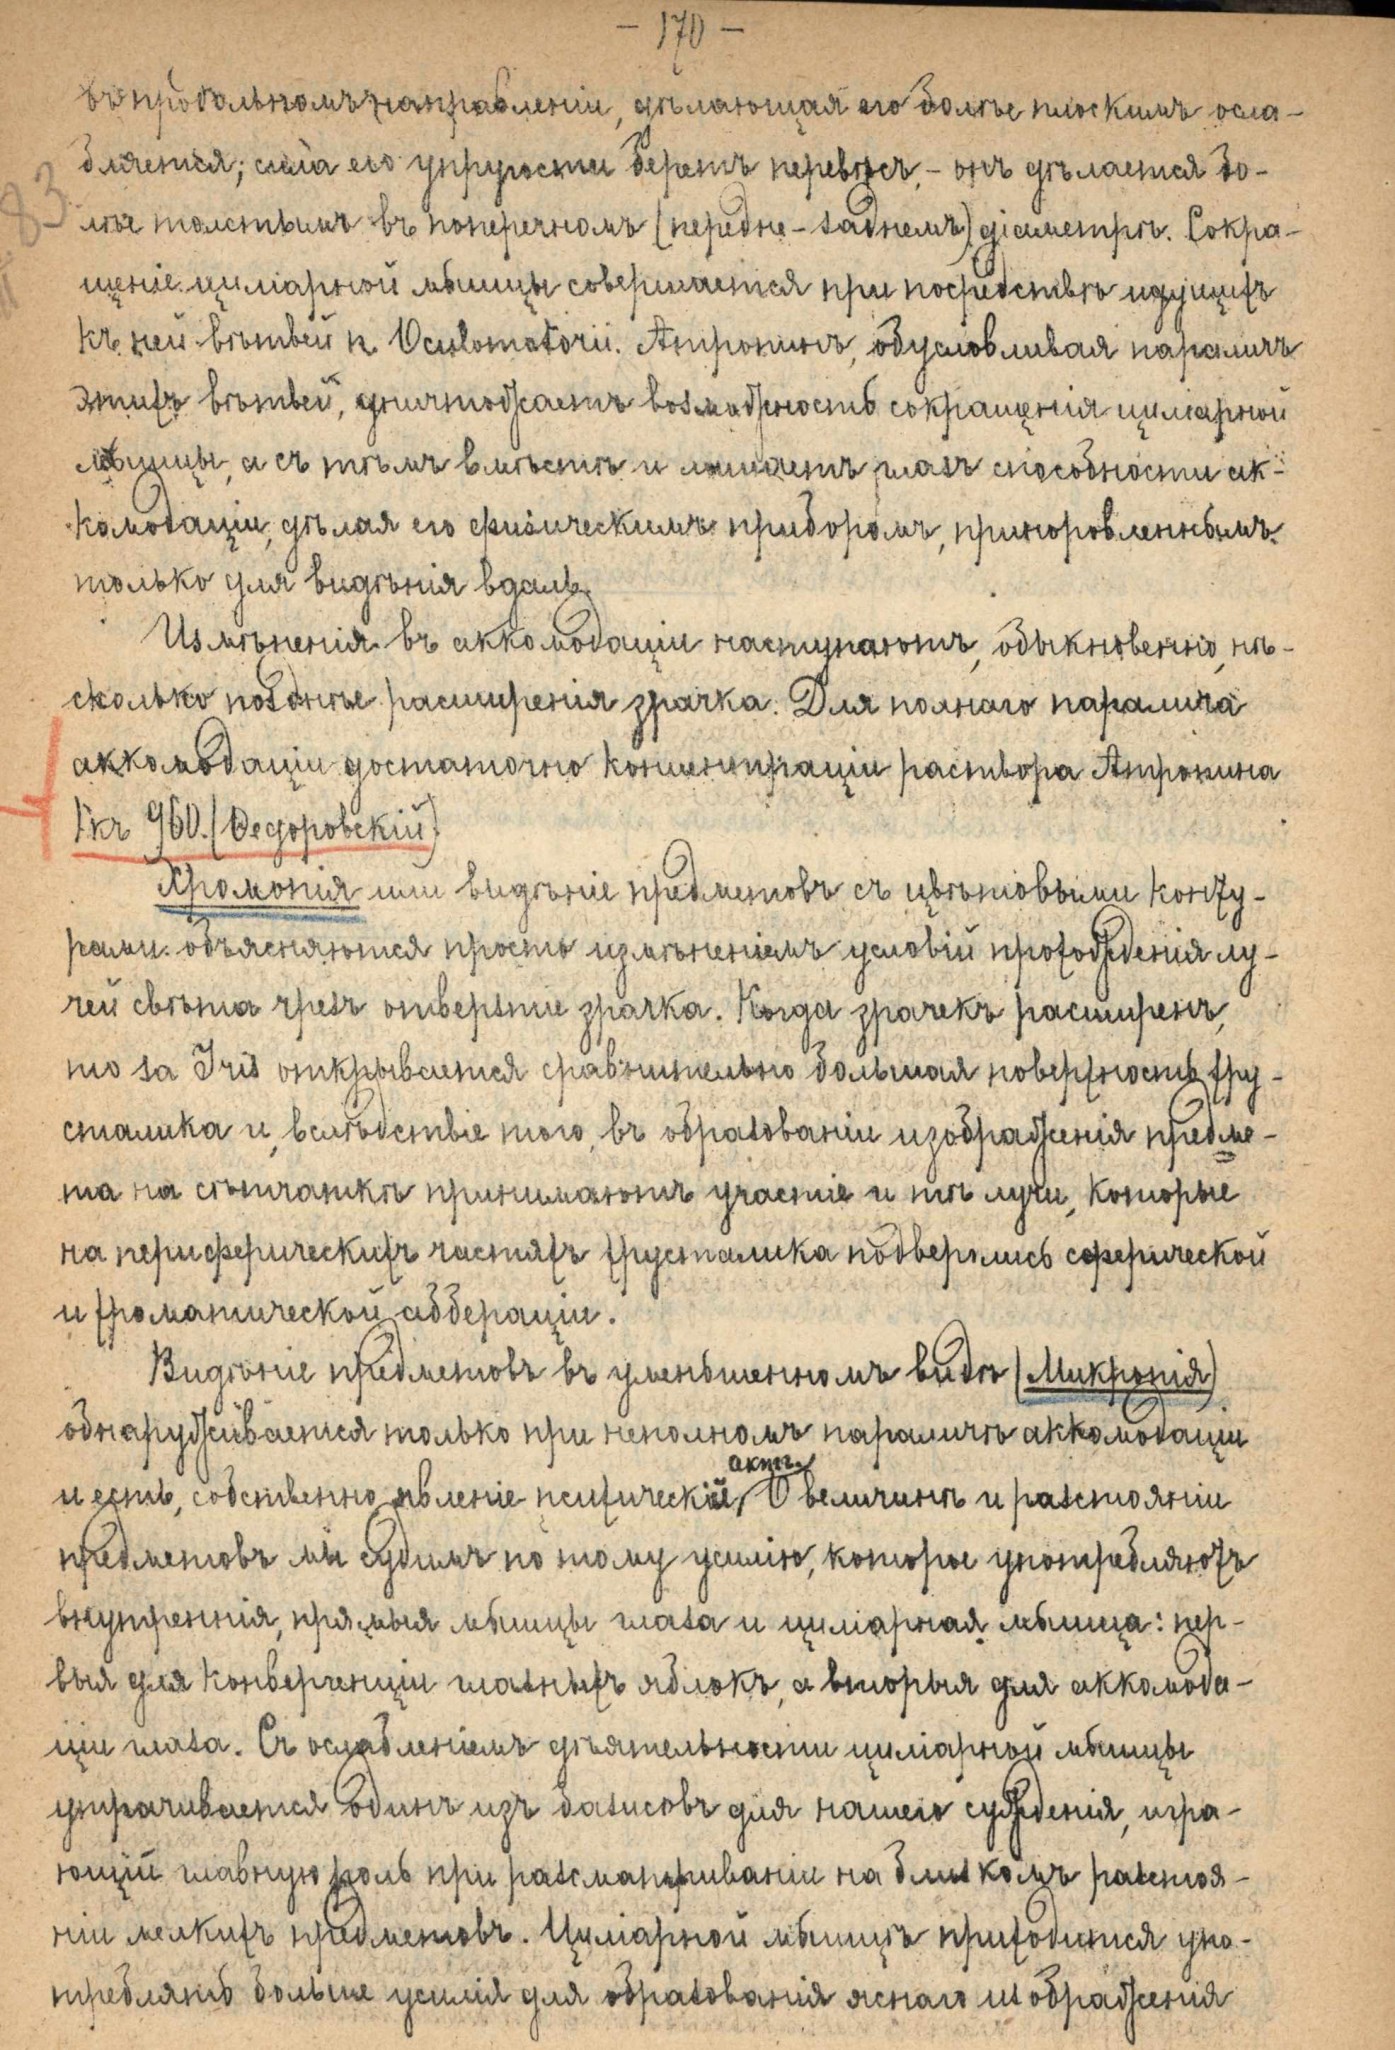 - 170 -
въ продольномъ направленіи, дѣлающая его болѣе плоскимъ осла-
бляется; сила его упругости беретъ перевѣсъ, - онъ дѣлается бо-
лѣе толстымъ въ поперечномъ (передне-заднемъ) діаметрѣ. Сокра-
щеніе циліарной мышцы совершается при посредствѣ идущихъ
къ ней вѣтвей n. Oculomotorii. Атропинъ, обусловливая параличъ
этихъ вѣтвей, уничтожаетъ возможность сокращенія циліарной
мышцы, а съ тѣмъ вмѣстѣ и лишаетъ глазъ способности ак-
комодаціи, дѣлая его физическимъ приборомъ, приноровленнымъ
только для видѣнія вдаль.
Измѣненія въ аккомодаціи наступаютъ, обыкновенно, нѣ-
сколько позднѣе расширенія зрачка. Для полнаго паралича
аккомодаціи достаточно концентраціи раствора Атропина
1 къ 960. (Ѳедоровскій).
Хромопія или видѣніе предметовъ съ цвѣтовыми конту-
рами объясняются просто измѣненіемъ условій прохожденія лу-
чей свѣта чрезъ отверзтіе зрачка. Когда зрачекъ расширенъ,
то за Iris открывается сравнительно большая поверхность хру-
сталика и, вслѣдствіе того, въ образованіи изображенія предме-
та на сѣтчаткѣ принимаютъ участіе и тѣ лучи, которые
на периферическихъ частяхъ хрусталика подверглись сферической
и хроматической абберраціи.
Видѣніе предметовъ въ уменьшенномъ видѣ (Микропія)
обнаруживается только при неполномъ параличѣ аккомодаціи
актъ.
и есть, собственно, явленіе психическій О величинѣ и разстояніи
предметовъ мы судимъ по тому усилію, которое употребляютъ
внутреннія, прямыя мышцы глаза и циліарная мышца: пер-
выя для конвергенціи глазныхъ яблокъ, а вторыя для аккомода-
ціи глаза. Съ ослабленіемъ дѣятельности циліарной мышцы
утрачивается одинъ изъ базисовъ для нашего сужденія, игра-
ющій главную роль при разсматриваніи на близкомъ разстоя-
ніи мелкихъ предметовъ. Циліарной мышцѣ приходится упо-
треблять больше усилія для образованія яснаго изображенія